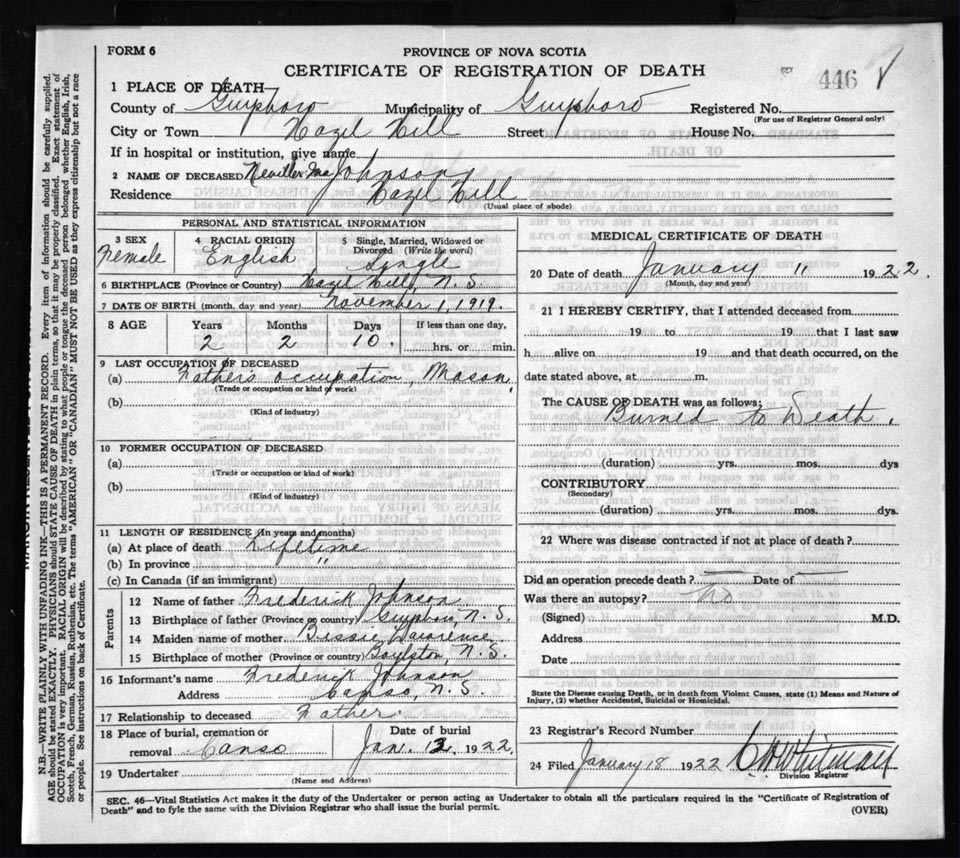 FORM 6
PROVINCE OF NOVA SCOTIA
CERTIFICATE OF REGISTRATION OF DEATH
446 √
1 PLACE OF DEATH—
County of Guysboro Municipality of Guysboro Registered No.
(For use of Registrar General only)
City or Town Hazel Hill Street House No.
If in hospital or institution, give name
2 NAME OF DECEASED Johnson
Residence Hazel Hill
(Usual place of abode)
PERSONAL AND STATISTICAL INFORMATION
3 SEX Female
4 RACIAL ORIGIN English
5 Single, Married, Widowed or Divorced (Write the word) Single
6 BIRTHPLACE (Province or Country) Hazel Hill, N. S.
7 DATE OF BIRTH (month, day and year) November 1, 1919.
8 AGE Years Months Days If less than one day,
2 2 10. hrs. or min.
9 LAST OCCUPATION OF DECEASED
(a) Fathers occupation, Mason.
(Trade or occupation or kind of work)
(b)
(Kind of industry)
10 FORMER OCCUPATION OF DECEASED
(a)
(Trade or occupation or kind of work)
(b)
(Kind of industry)
11 LENGTH OF RESIDENCE (In years and months)
(a) At place of death Lifetime
(b) In province "
(c) In Canada (if an immigrant)
Parents
12 Name of father Frederick Johnson
13 Birthplace of father (Province or country) Guysboro, N. S.
14 Maiden name of mother Lawrence
15 Birthplace of mother (Province or country) Boylston, N. S.
16 Informant's name Frederick Johnson
Address Canso, N. S.
17 Relationship to deceased Father.
18 Place of burial, cremation or removal Canso
Date of burial Jan. 13, 1922.
19 Undertaker
(Name and Address)
MEDICAL CERTIFICATE OF DEATH
20 Date of death January 11 1922.
(Month, day and year)
21 I HEREBY CERTIFY, that I attended deceased from
19 to 19 that I last saw
h alive on 19 and that death occurred, on the
date stated above, at m.
The CAUSE OF DEATH was as follows:
Burned to Death.
(duration) yrs. mos. dys
CONTRIBUTORY
(Secondary)
(duration) yrs. mos. dys.
22 Where was disease contracted if not at place of death?
Did an operation precede death? — Date of —
Was there an autopsy? No
(Signed) M.D.
Address
Date
State the Disease causing Death, or in death from Violent Causes, state (1) Means and Nature of
Injury, (2) whether Accidental, Suicidal or Homicidal.
23 Registrar's Record Number
24 Filed January 18 1922 Whitman
Division Registrar
SEC. 46—Vital Statistics Act makes it the duty of the Undertaker or person acting as Undertaker to obtain all the particulars required in the "Certificate of Registration of
Death" and to fyle the same with the Division Registrar who shall issue the burial permit. (OVER)
N.B.—WRITE PLAINLY WITH UNFADING INK—THIS IS A PERMANENT RECORD. Every item of information should be carefully supplied.
AGE should be stated EXACTLY. PHYSICIANS should STATE CAUSE OF DEATH in plain terms, so that it may be properly classified. Exact statement of
OCCUPATION is very important. RACIAL ORIGIN will be described by stating to what people or tongue the deceased person belonged whether English, Irish,
Scotch, French, German, Russian, Ruthenian, etc. The terms "AMERICAN" or "CANADIAN" MUST NOT BE USED as they express citizenship but not a race
or people. See instructions on back of Certificate.